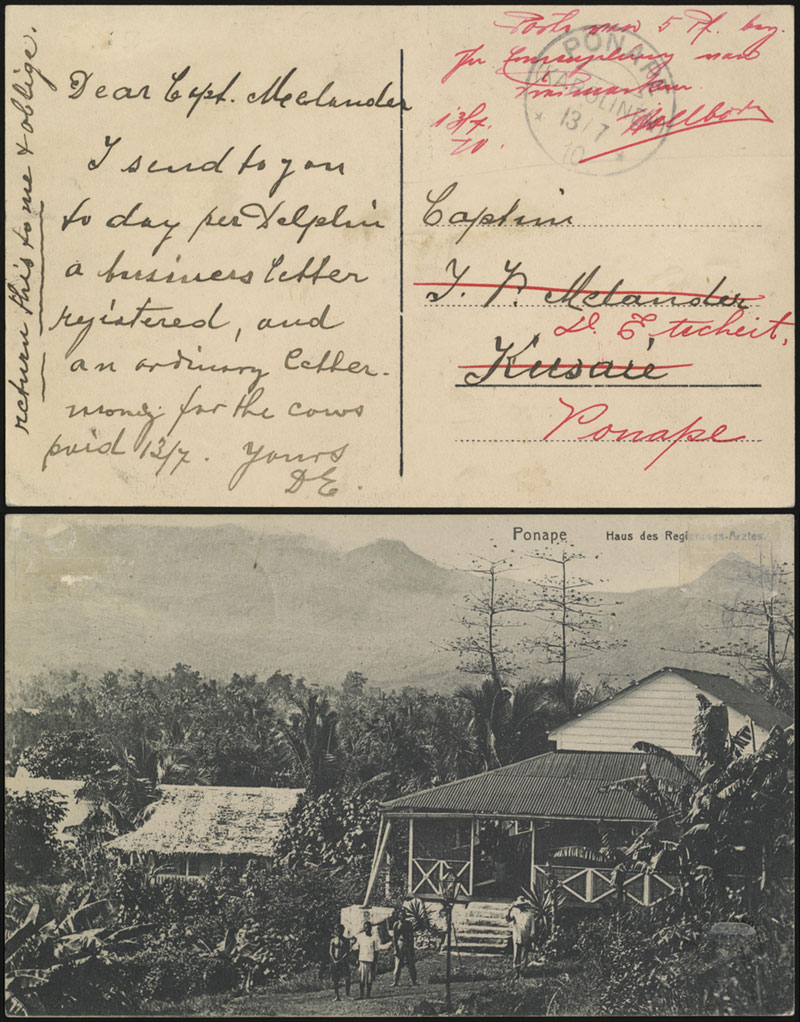 Porto von 5 Pf. bez.
in Ermangelung von
Freimarken.
13/7.
10.
PONAPE
(KAROLINEN)
13/7
10
* *
Dear Capt. Melander
I send to you
to day per Delphin
a business letter
registered, and
an ordinary letter.
money for the cows
paid 13/7. Yours
DE.
return this to me & oblige.
Captain
T. V. Melander
D. Etscheit,
Kusaie
Ponape
Ponape Haus des Regierungs-Arztes